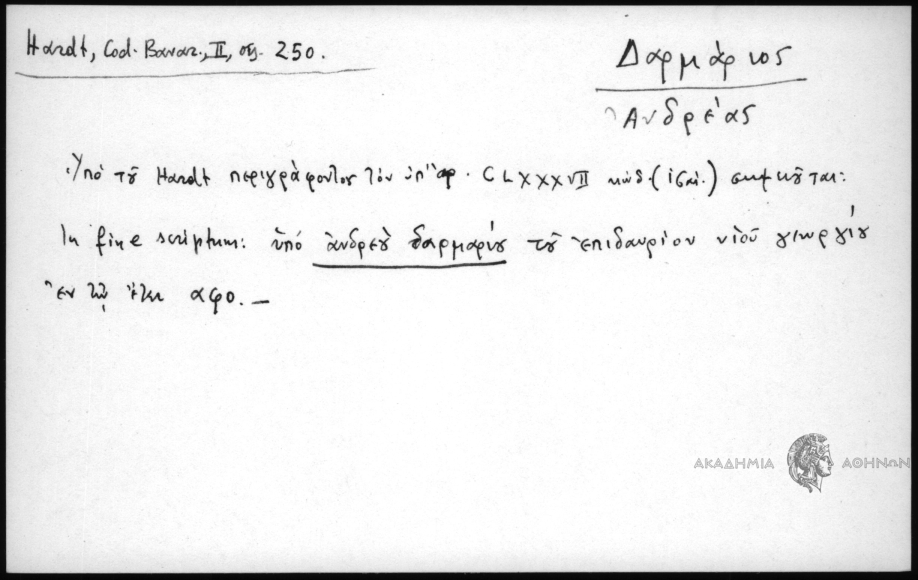 Hardt, Cod. Bavar., II, σ. 250.
Δαρμάριος
Ἀνδρέας
Ὑπό τοῦ Hardt περιγράφοντος τόν ὑπ' ἀρ. CLXXXVII κώδ (ἰσπ.) σημειοῦται:
In fine scriptum: ὑπό ἀνδρέου δαρμαρίου τοῦ ἐπιδαυρίου υἱοῦ γεωργίου
ἐν τῷ ἔτει αφο. —
ΑΚΑΔΗΜΙΑ ΑΘΗΝΩΝ